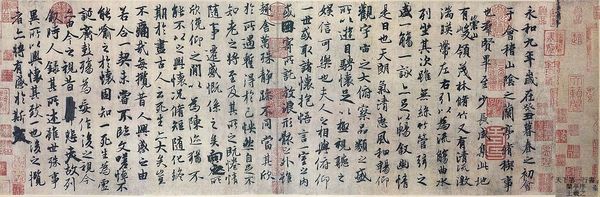 永和九年歲在癸丑暮春之初會
于會稽山陰之蘭亭脩稧事
也羣賢畢至少長咸集此地
有崇山峻領茂林脩竹又有清流激
湍暎帶左右引以為流觴曲水
列坐其次雖無絲竹管弦之
盛一觴一詠亦足以暢敘幽情
是日也天朗氣清惠風和暢仰
觀宇宙之大俯察品類之盛
所以遊目騁懷足以極視聽之
娛信可樂也夫人之相與俯仰
一世或取諸懷抱悟言一室之內
或因寄所託放浪形骸之外雖
趣舍萬殊靜躁不同當其欣
於所遇暫得於己怏然自足不
知老之將至及其所之既惓情
隨事遷感慨係之矣向之所
欣俛仰之閒以為陳迹猶不
能不以之興懷況脩短隨化終
期於盡古人云死生亦大矣豈
不痛哉每攬昔人興感之由
若合一契未嘗不臨文嗟悼不
能喻之於懷固知一死生為虛
誕齊彭殤為妄作後之視今
亦由今之視昔悲夫故列
敘時人錄其所述雖世殊事
異所以興懷其致一也後之攬
者亦將有感於斯文
天下第一行書